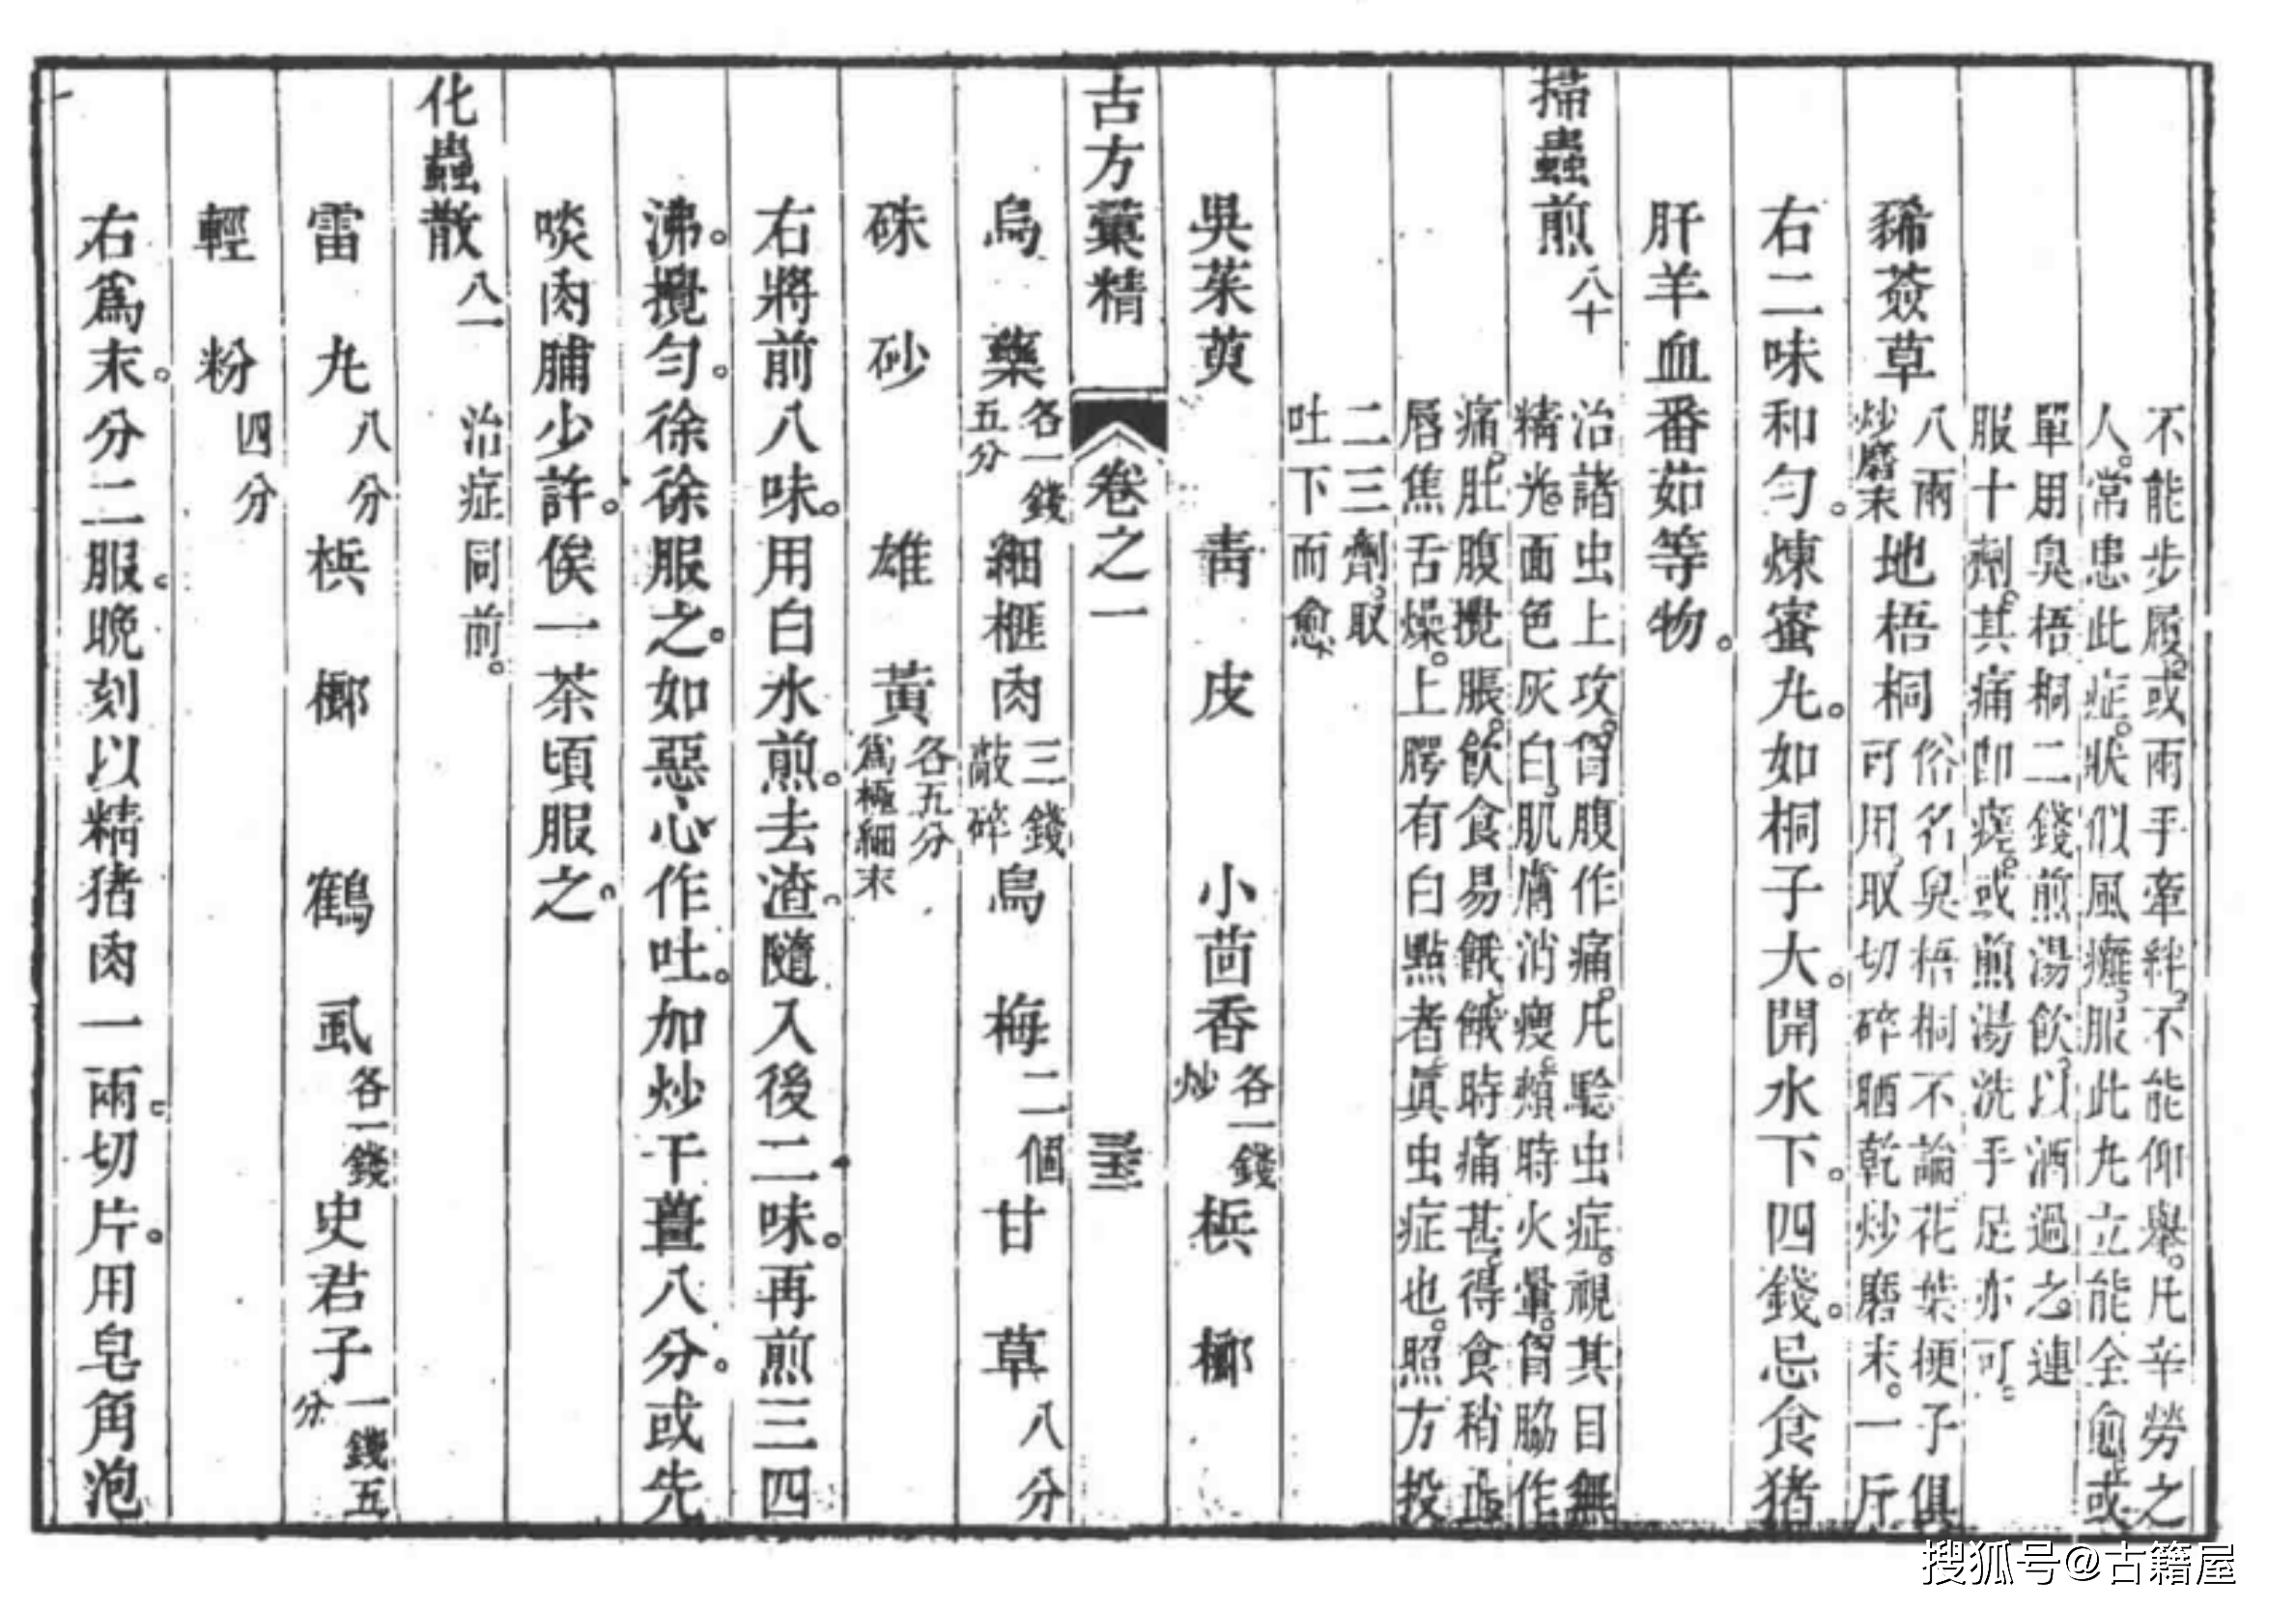 不能步履。或兩手牽絆。不能仰舉。凡辛勞之
人。常患此症。狀似風癱。服此丸立能全愈。或
單用臭梧桐二錢煎湯飲。以酒過之。連
服十劑。其痛卽瘥。或煎湯洗手足亦可。
豨薟草 八兩
炒磨末
地梧桐 俗名臭梧桐不論花葉梗子俱
可用。取切碎晒乾炒磨末。一斤
右二味和勻。煉蜜丸。如桐子大。開水下。四錢。忌食猪
肝羊血番茄等物。
掃蟲煎 八十
治諸虫上攻。胃腹作痛。凡驗虫症。視其目無
精光。面色灰白。肌膚消瘦。頰時火暈。胃脇作
痛。肚腹攪脹。飲食易餓。餓時痛甚。得食稍止。
唇焦舌燥。上腭有白點者。眞虫症也。照方投
二三劑。取
吐下而愈
吳茱萸 青皮 小茴香 各一錢
炒
梹榔
古方彙精 卷之一
烏藥 各一錢
五分
細榧肉 三錢
敲碎
烏梅 二個 甘草 八分
硃砂 雄黃 各五分
爲極細末
右將前八味。用白水煎。去渣。隨入後二味。再煎三四
沸。攪勻。徐徐服之。如惡心作吐。加炒干薑八分。或先
啖肉脯少許。俟一茶頃服之。
化蟲散 八一 治症同前。
雷丸 八分 梹榔 鶴虱 各一錢 史君子 一錢五
分
輕粉 四分
右爲末。分二服。晚刻以精猪肉一兩。切片。用皂角泡
搜狐号@古籍屋